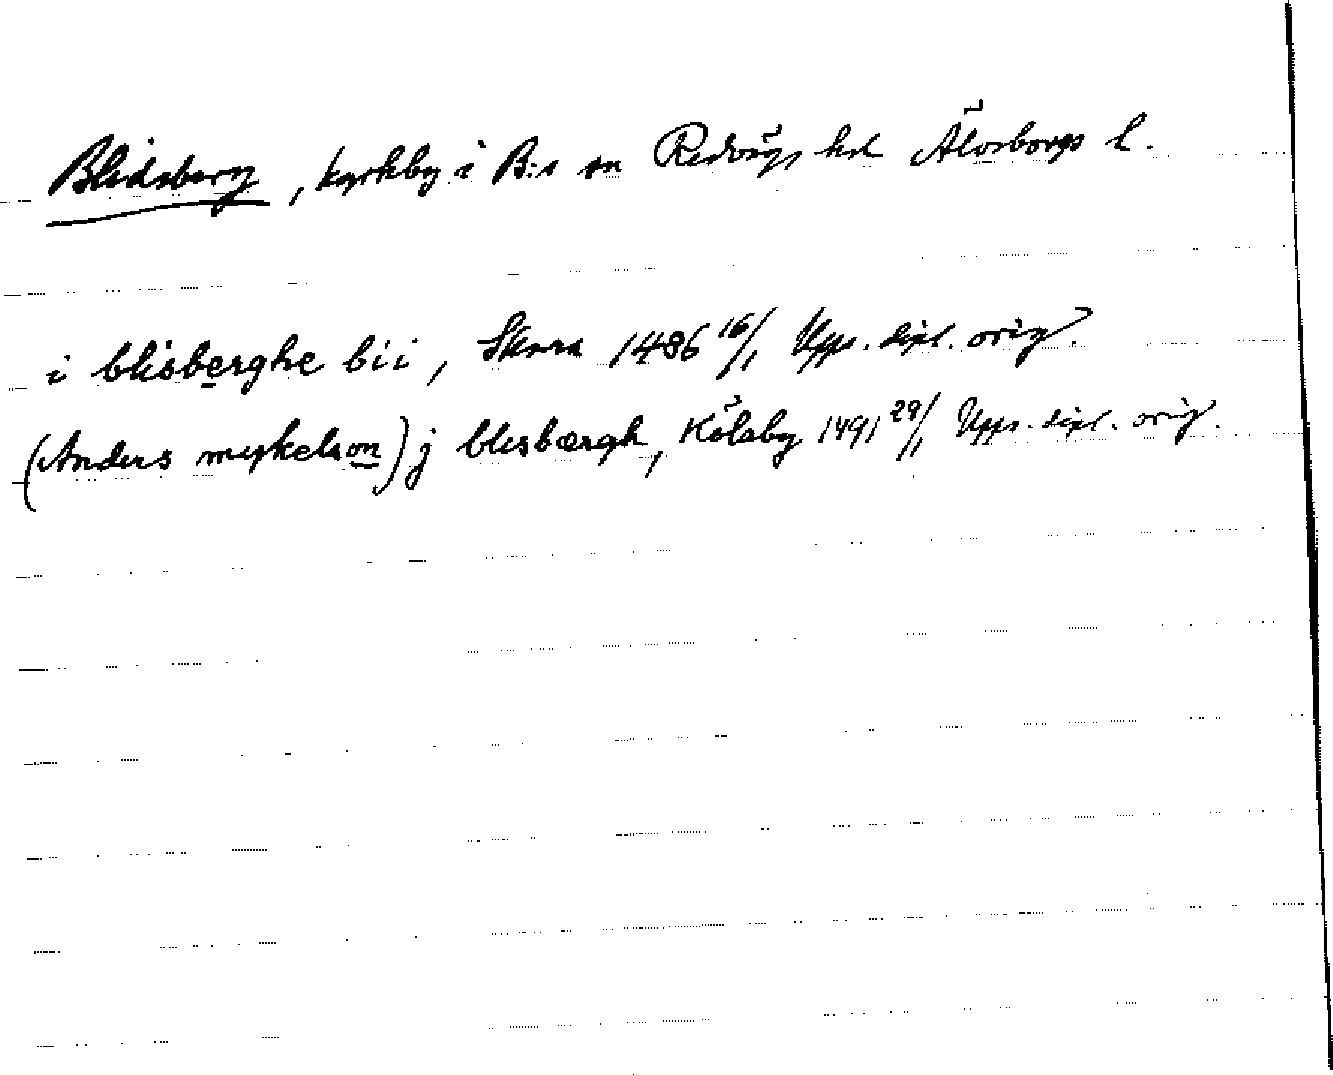 Blidsberg, kyrkby i B:s sn Redvägs hd Älvsborgs l.
i blisberghe bii, Skara 1486 16/1 Upps. dipl. orig.
(Anders mykelson) j blisbærgh, Kölaby 1491 29/1 Upps. dipl. orig.